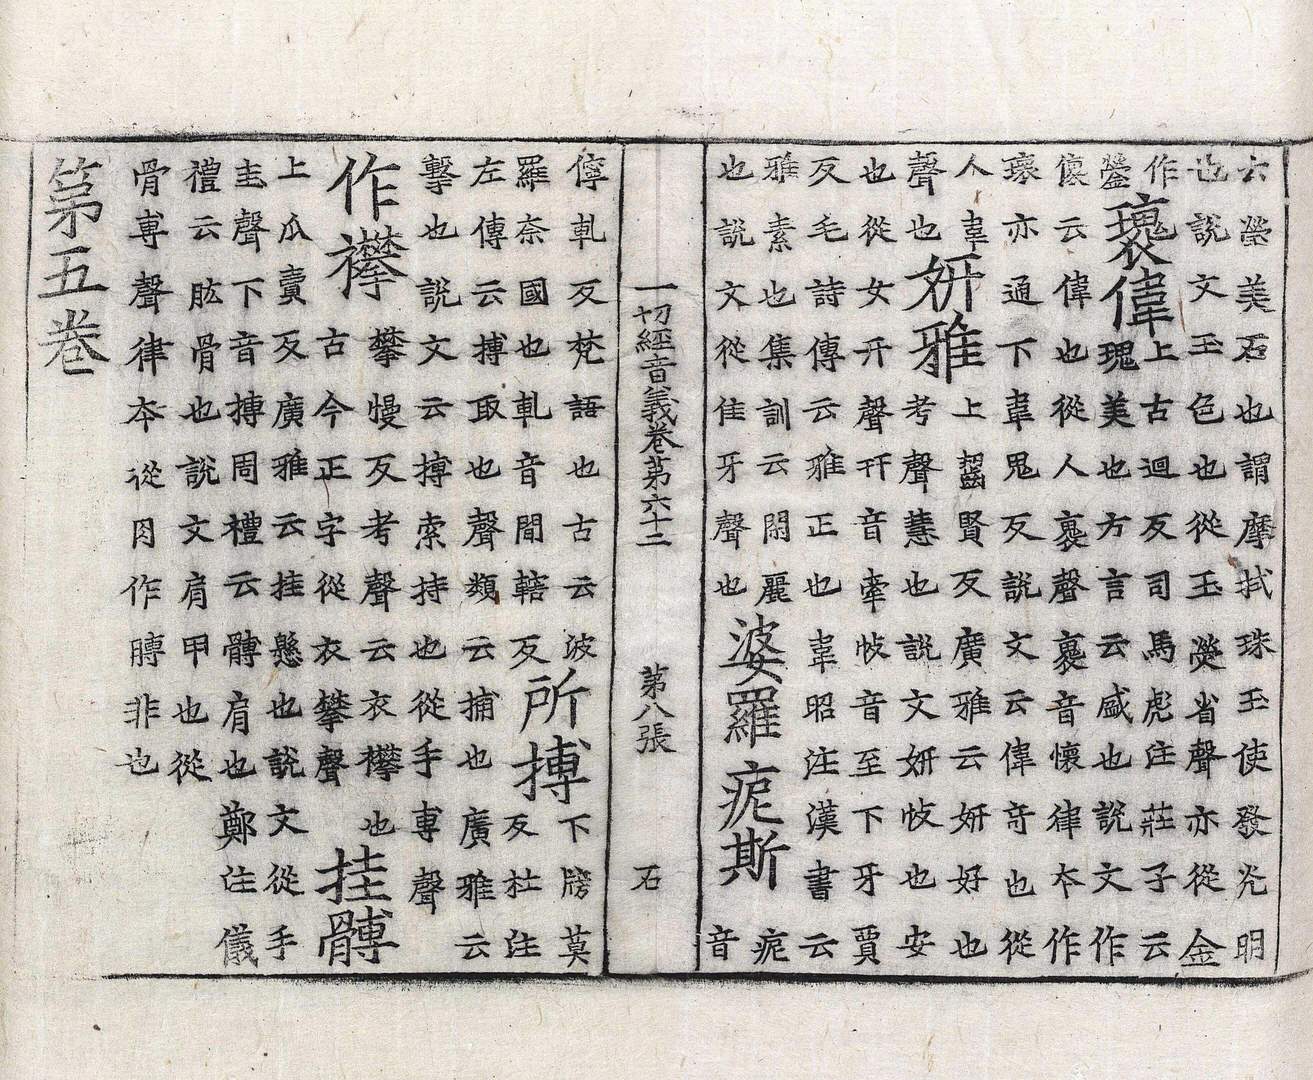 云瑩美石也謂摩拭珠玉使發光明
也說文玉色也從玉熒省聲亦從金
作
鎣
瓌偉
上古迴反司馬彪注莊子云
瑰美也方言云盛也說文作
傀云偉也從人褱聲褱音懷律夲作
瓌亦通下韋鬼反說文云偉竒也從
人韋
聲也
妍雅
上齧賢反廣雅云妍好也
考聲慧也說文妍忮也安
也從女幵聲幵音牽忮音至下牙賈
反毛詩傳云雅正也韋昭注漢書云
雅素也集訓云閑麗
也說文從隹牙聲也
婆羅痆斯
痆
音
一切經音義卷第六十二 第八張 石
儜軋反梵語也古云波
羅奈國也軋音間轄反
所搏
下牓莫
反杜注
左傳云搏取也聲類云捕也廣雅云
擊也說文云搏索持也從手尃聲
作襻
攀慢反考聲云衣襻也
古今正字從衣攀聲
挂髆
上瓜賣反廣雅云挂懸也說文從手
圭聲下音搏周禮云髆肩也鄭注儀
禮云肱骨也說文肩甲也從
骨尃聲律夲從肉作膊非也
第五卷